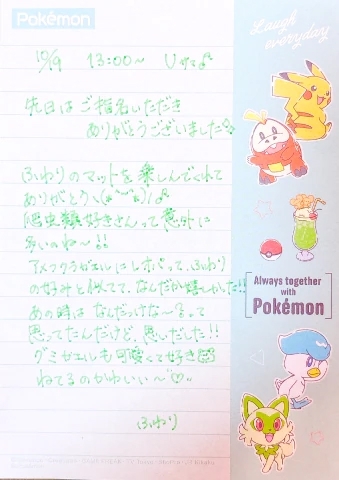 Pokémon
Laugh
everyday
10/9 13:00〜 Uやま♪
先日はご指名いただき
ありがとうございました
ふわりのマットを楽しんでくれて
ありがとう
爬虫類好きさんって意外に
多いのね〜!!
アメフクラガエルにレオパって、ふわり
の好みと似てて、なんだか嬉しかった!!
あの時はなんだっけな〜るって
思ってたんだけど、思いだした!!
グミガエルも可愛くて好き
ねてるのかわいい〜♡
ふわり
Always together
with
Pokémon